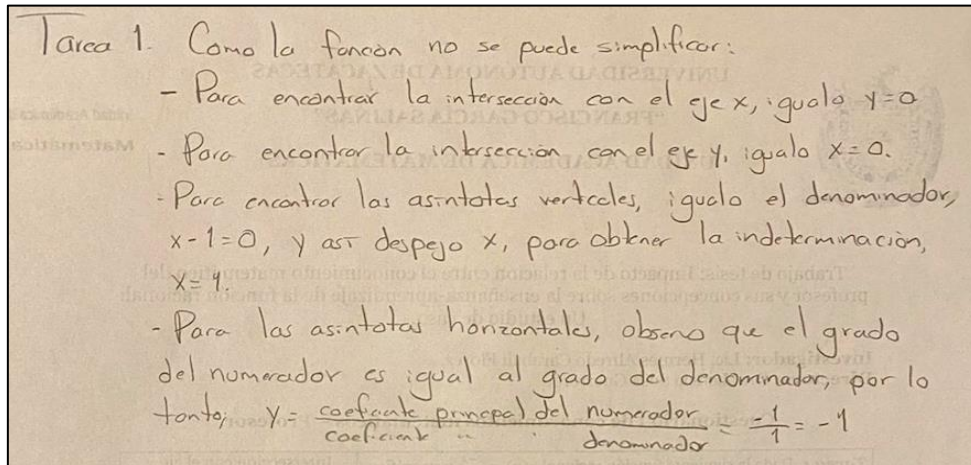 Tarea 1. Como la función no se puede simplificar:
- Para encontrar la intersección con el eje x, igualo y=0
- Para encontrar la intersección con el eje y, igualo x=0.
- Para encontrar las asíntotas verticales, igualo el denominador,
x-1=0, y así despejo x, para obtener la indeterminación,
x=1.
- Para las asíntotas horizontales, observo que el grado
del numerador es igual al grado del denominador, por lo
tanto; y= coeficiente principal del numerador / coeficiente " " denominador = -1/1 = -1